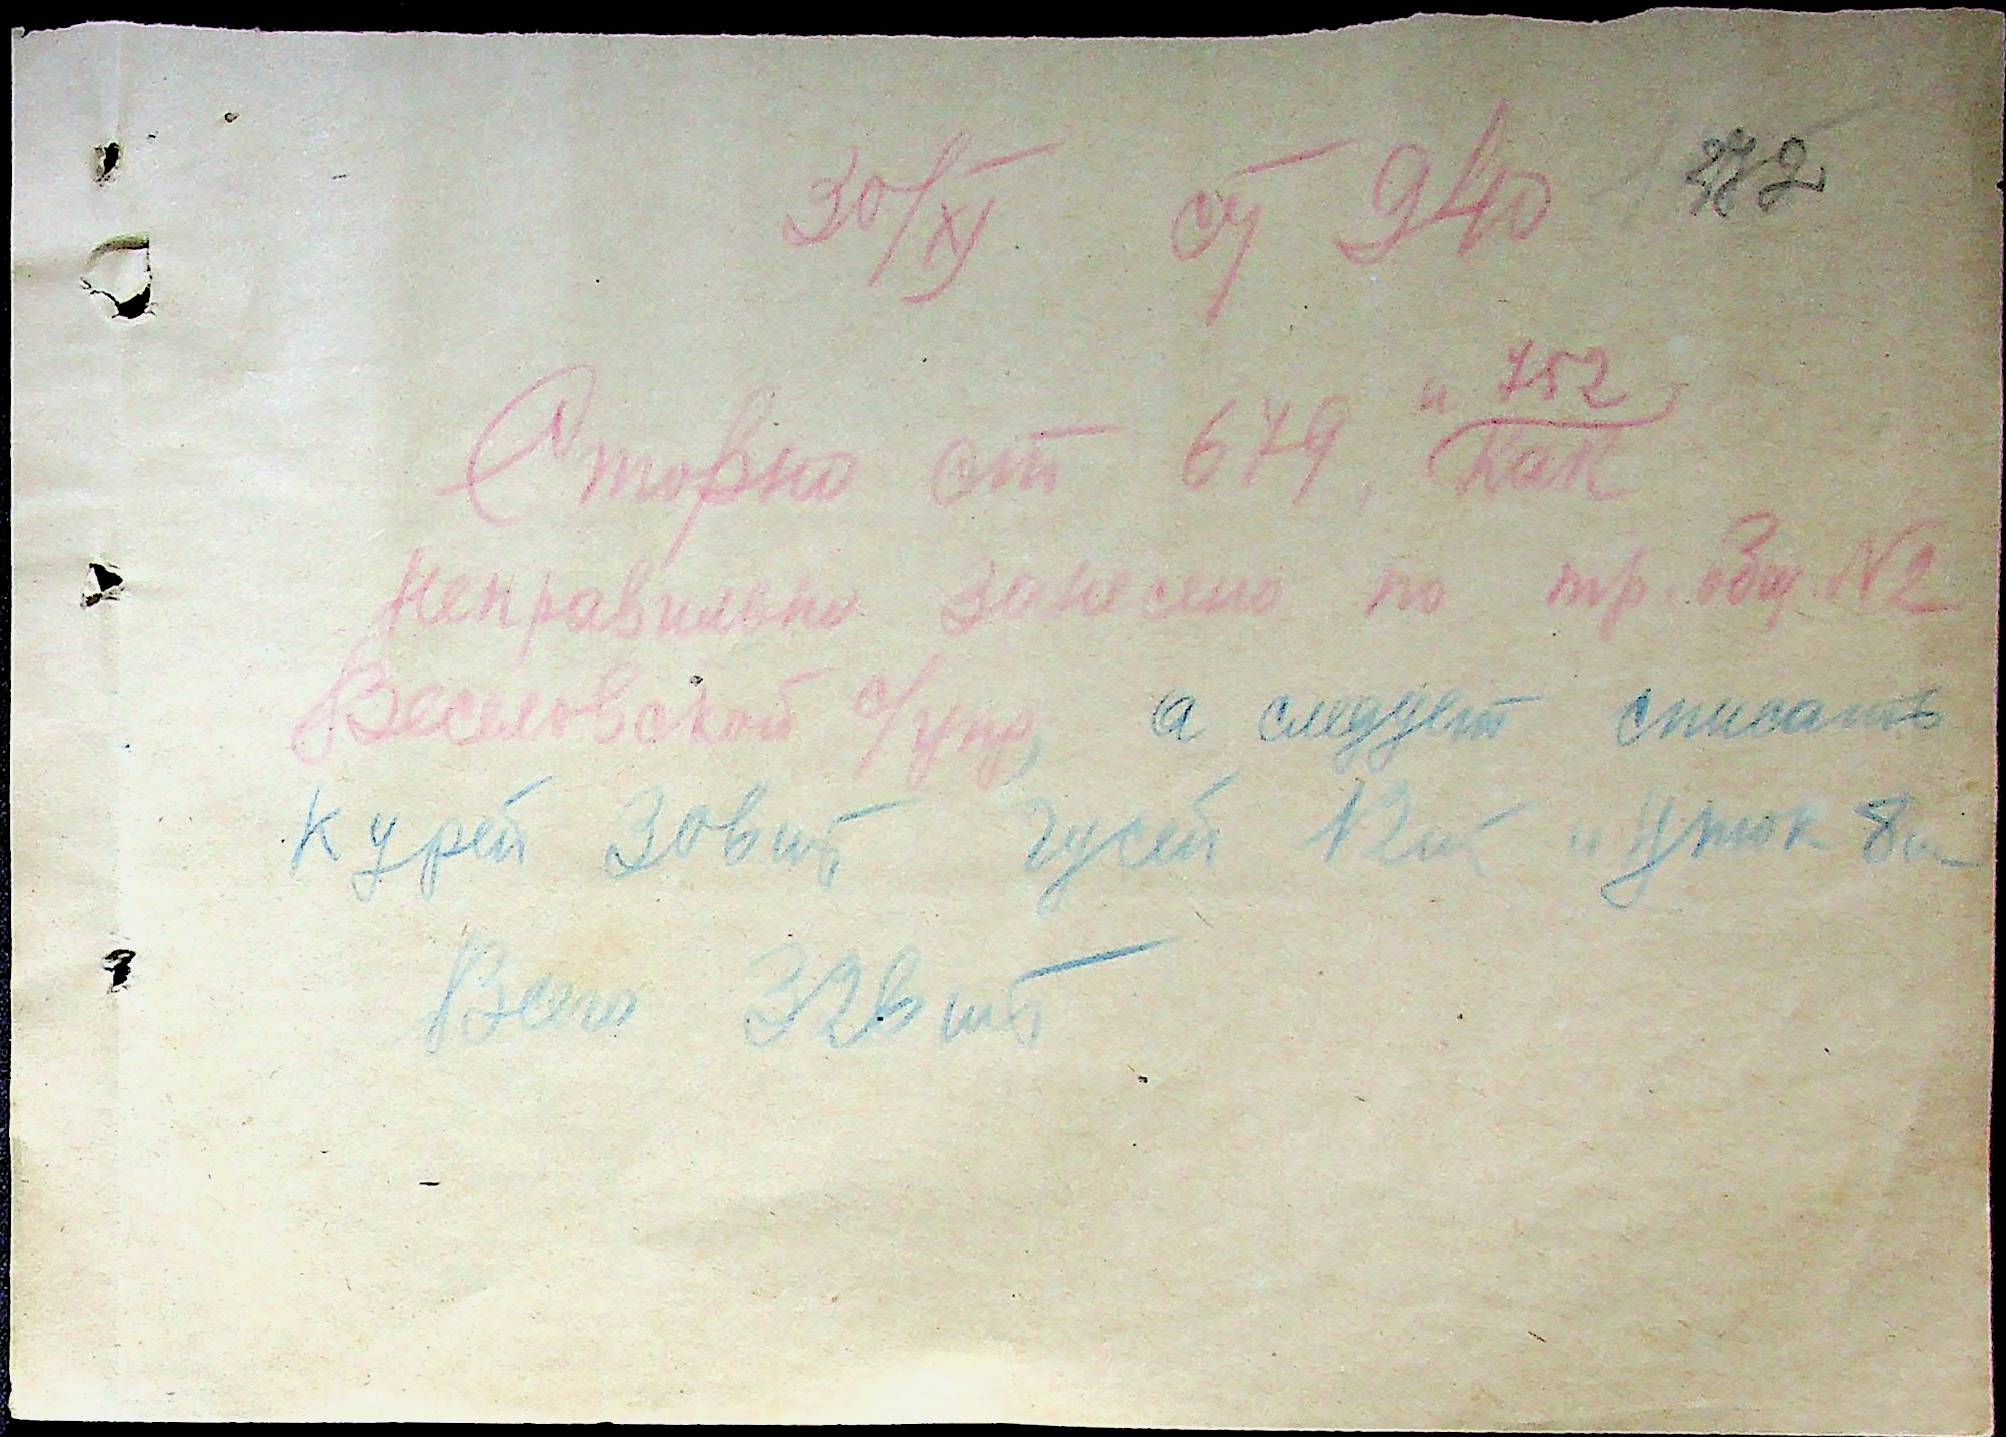 30/XI ст 940 272
Сторно ст 679, и 752 как
неправильно занесено по тр. общ. №2
Веселовской с/упр, а следует списать
курей 306 шт гусей 12 шт и уток 8 шт
Всего 326 шт